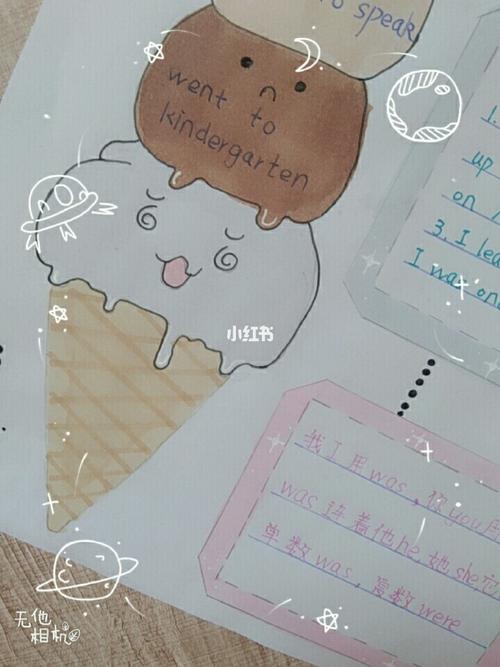 to speak
went to
kindergarten
1.
up
on
3. I lea
I was on
小红书
我 I 用 was, 你 you 用
was 连着他 he, 她 she, 它
单数 was, 复数 were
无他
相机